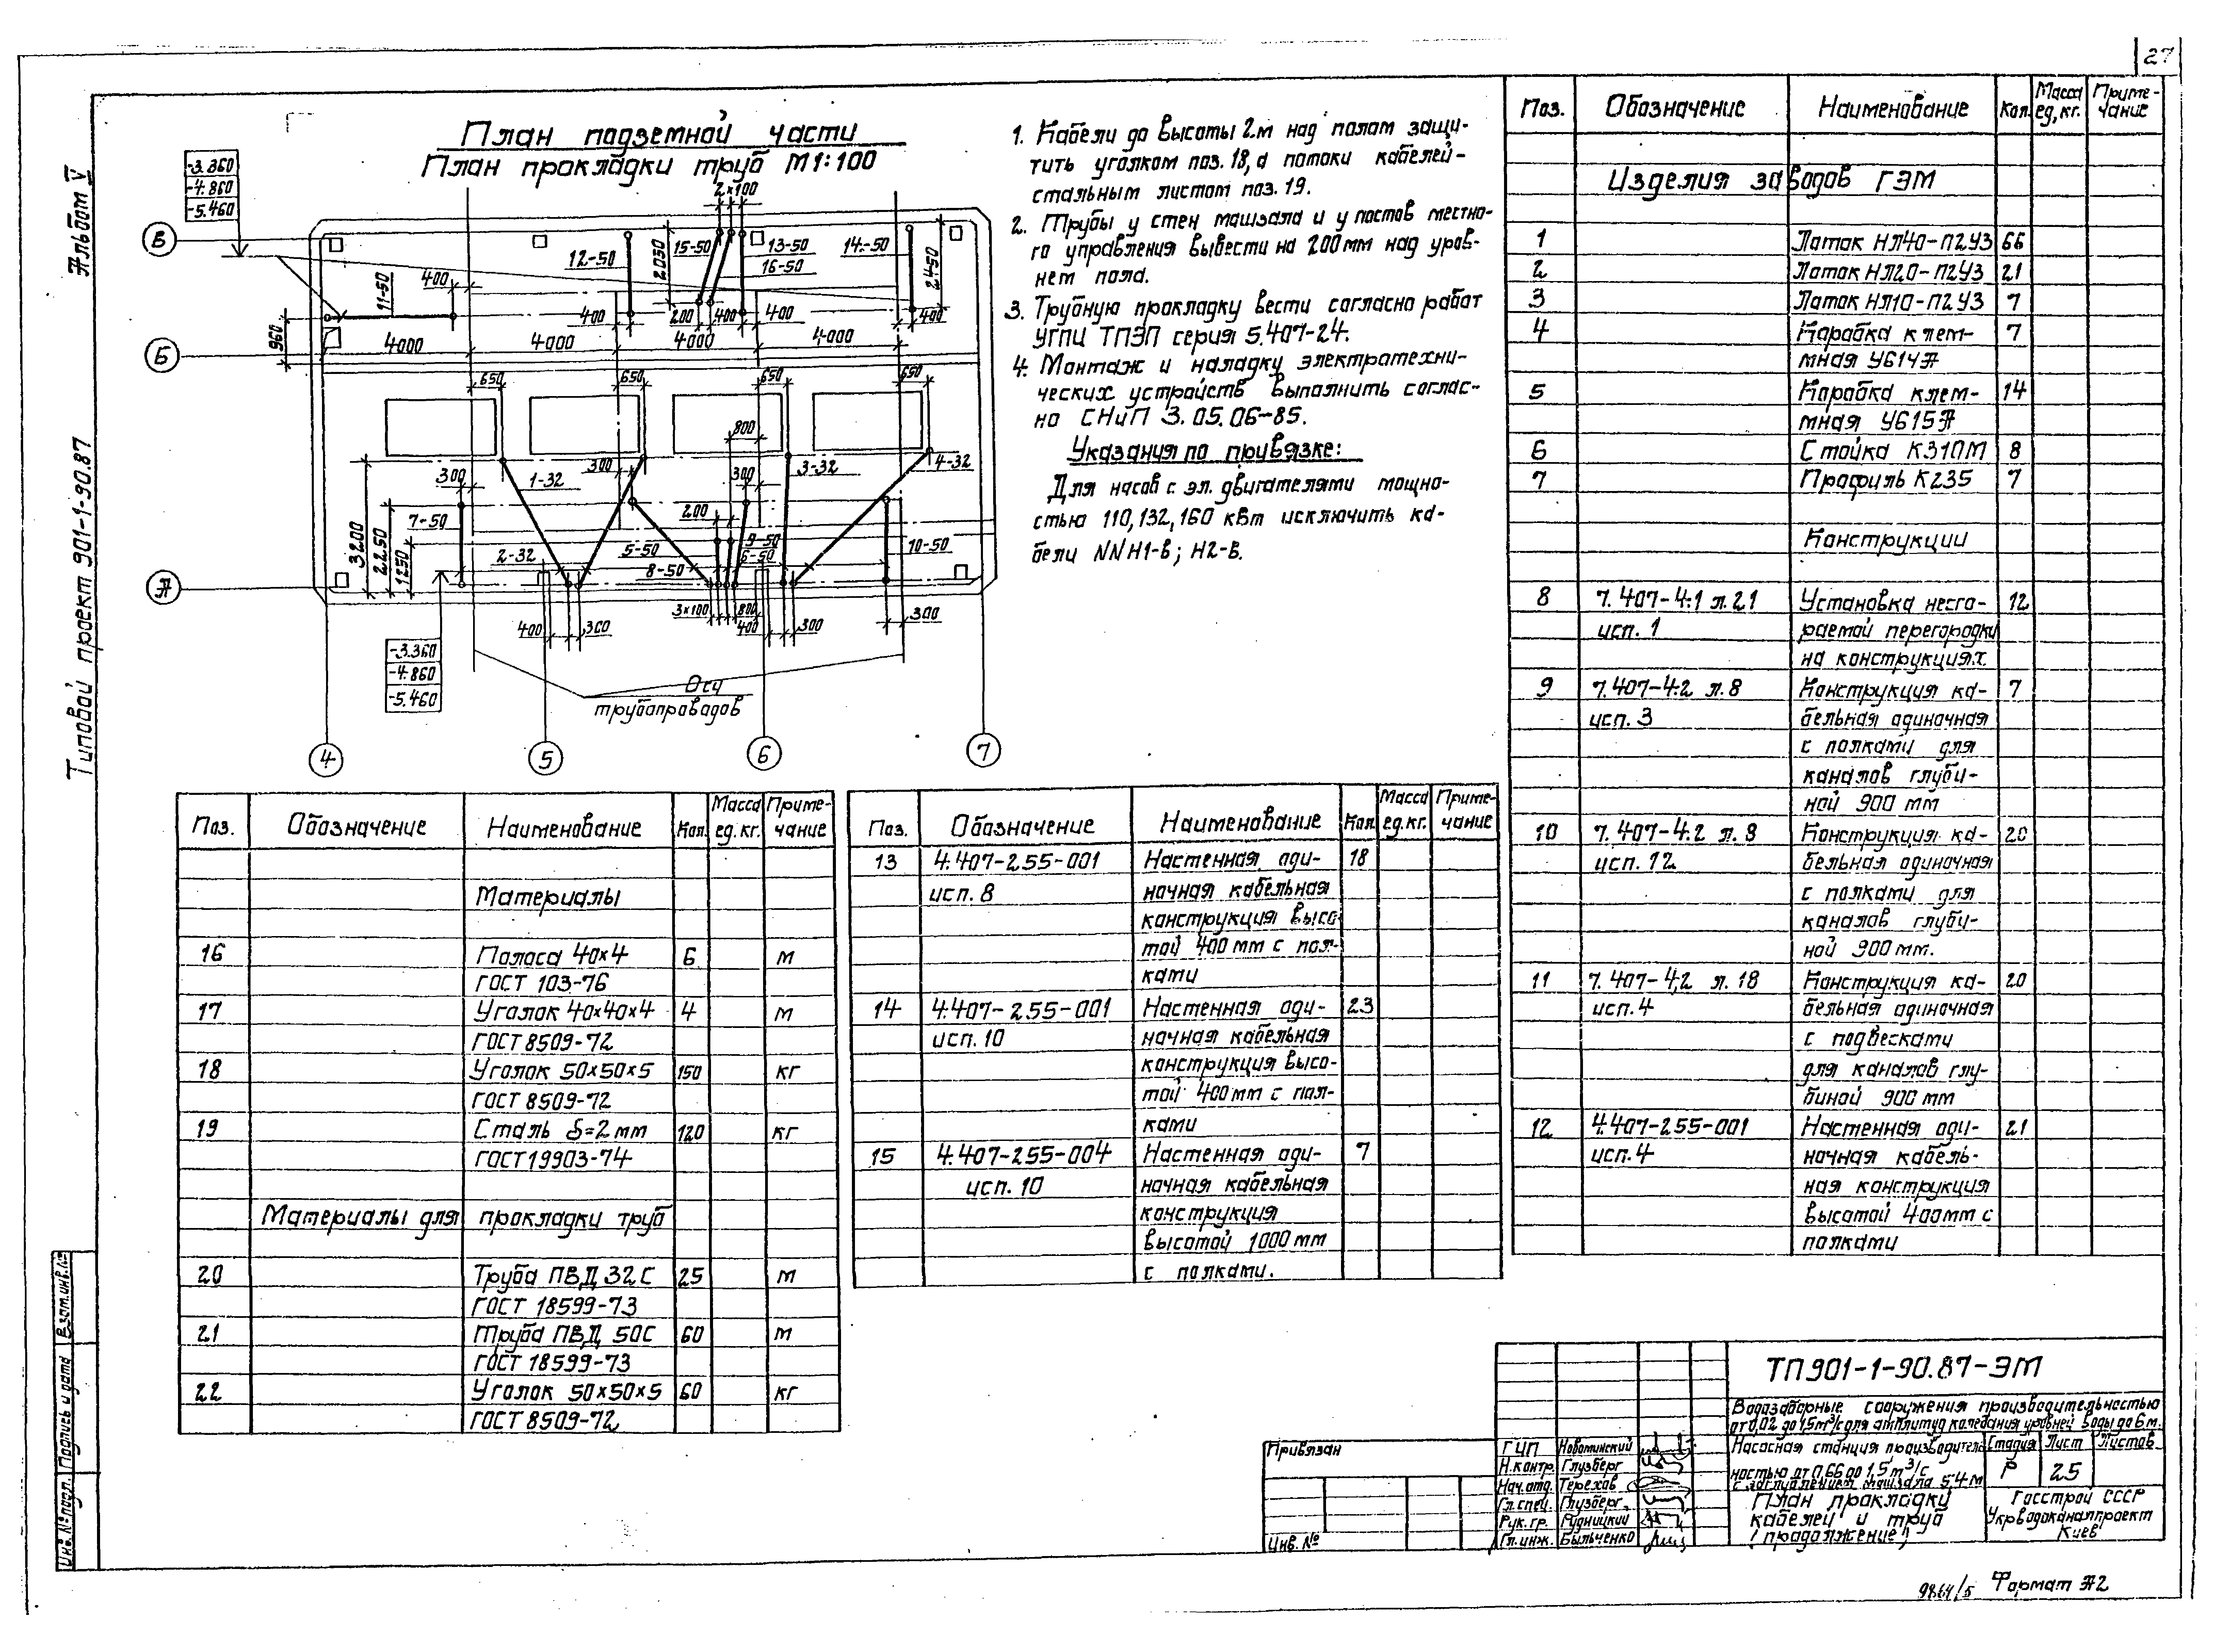 27
Альбом V
Типовой проект 901-1-90.87
План подземной части
План прокладки труб М1:100
-3.360
-4.860
-5.460
2×100
В
12-50
2050
15-50
13-50
16-50
14-50
2450
11-50
400
400
200
400
400
400
960
Б
4000
4000
4000
4000
650
650
650
650
800
300
1-32
300
300
3-32
4-32
3200
2250
1250
7-50
2-32
200
5-50
9-50
6-50
8-50
10-50
А
3×100
800
400
300
400
300
300
-3.360
-4.860
-5.460
Оси
трубопроводов
4
5
6
7
1. Кабели до высоты 2м над полом защи-
тить уголком поз. 18, а потоки кабелей-
стальным листом поз. 19.
2. Трубы у стен машзала и у постов местно-
го управления вывести на 200 мм над уров-
нем пола.
3. Трубную прокладку вести согласно работ
УГПИ ТПЭП серия 5.407-24.
4. Монтаж и наладку электротехни-
ческих устройств выполнить соглас-
но СНиП 3.05.06-85.
Указания по привязке:
Для насов с эл. двигателями мощно-
стью 110, 132, 160 кВт исключить ка-
бели NN Н1-в; Н2-в.
Поз. Обозначение Наименование Кол. Масса ед, кг. Приме-чание
Изделия заводов ГЭМ
1 Лоток НЛ40-П2У3 66
2 Лоток НЛ20-П2У3 21
3 Лоток НЛ10-П2У3 7
4 Коробка клем- 7
мная У614А
5 Коробка клем- 14
мная У615А
6 Стойка К310М 8
7 Профиль К235 7
Конструкции
8 7.407-4.1 л.21 Установка несго- 12
исп. 1 раемой перегородки
на конструкциях
9 7.407-4.2 л.8 Конструкция ка- 7
исп. 3 бельная одиночная
с полками для
каналов глуби-
ной 900 мм
10 7.407-4.2 л.8 Конструкция ка- 20
исп. 12 бельная одиночная
с полками для
каналов глуби-
ной 900 мм.
11 7.407-4.2 л.18 Конструкция ка- 20
исп. 4 бельная одиночная
с подвесками
для каналов глу-
биной 900 мм
12 4.407-255-001 Настенная оди- 21
исп. 4 ночная кабель-
ная конструкция
высотой 400мм с
полками
Поз. Обозначение Наименование Кол. Масса ед. кг. Приме-чание
13 4.407-255-001 Настенная оди- 18
исп. 8 ночная кабельная
конструкция высо
той 400 мм с пол-
ками
14 4.407-255-001 Настенная оди- 23
исп. 10 ночная кабельная
конструкция высо-
той 400 мм с пол-
ками
15 4.407-255-004 Настенная оди- 7
исп. 10 ночная кабельная
конструкция
высотой 1000 мм
с полками.
Поз. Обозначение Наименование Кол. Масса ед. кг. Приме-чание
Материалы
16 Полоса 40×4 6 м
ГОСТ 103-76
17 Уголок 40×40×4 4 м
ГОСТ 8509-72
18 Уголок 50×50×5 150 кг
ГОСТ 8509-72
19 Сталь δ=2мм 120 кг
ГОСТ 19903-74
Материалы для прокладки труб
20 Труба ПВД 32С 25 м
ГОСТ 18599-73
21 Труба ПВД 50С 60 м
ГОСТ 18599-73
22 Уголок 50×50×5 60 кг
ГОСТ 8509-72
Взам. инв. №
Подпись и дата
Инв. № подл.
Привязан
Инв. №
ГИП Новоминский
Н.контр. Глузберг
Нач.отд. Терехов
Гл.спец. Глузберг
Рук.гр. Рудницкий
Гл.инж. Быльченко
ТП901-1-90.87-ЭМ
Водозаборные сооружения производительностью
от 0,02 до 1,5м³/с для амплитуд колебания уровней воды до 6м.
Насосная станция производитель
ностью от 0,66 до 1,5 м³/с
с заглублением машзала 5,4 м
Стадия Лист Листов
Р 25
План прокладки
кабелей и труб
(продолжение)
Госстрой СССР
Укрводоканалпроект
Киев
9864/5 Формат А2